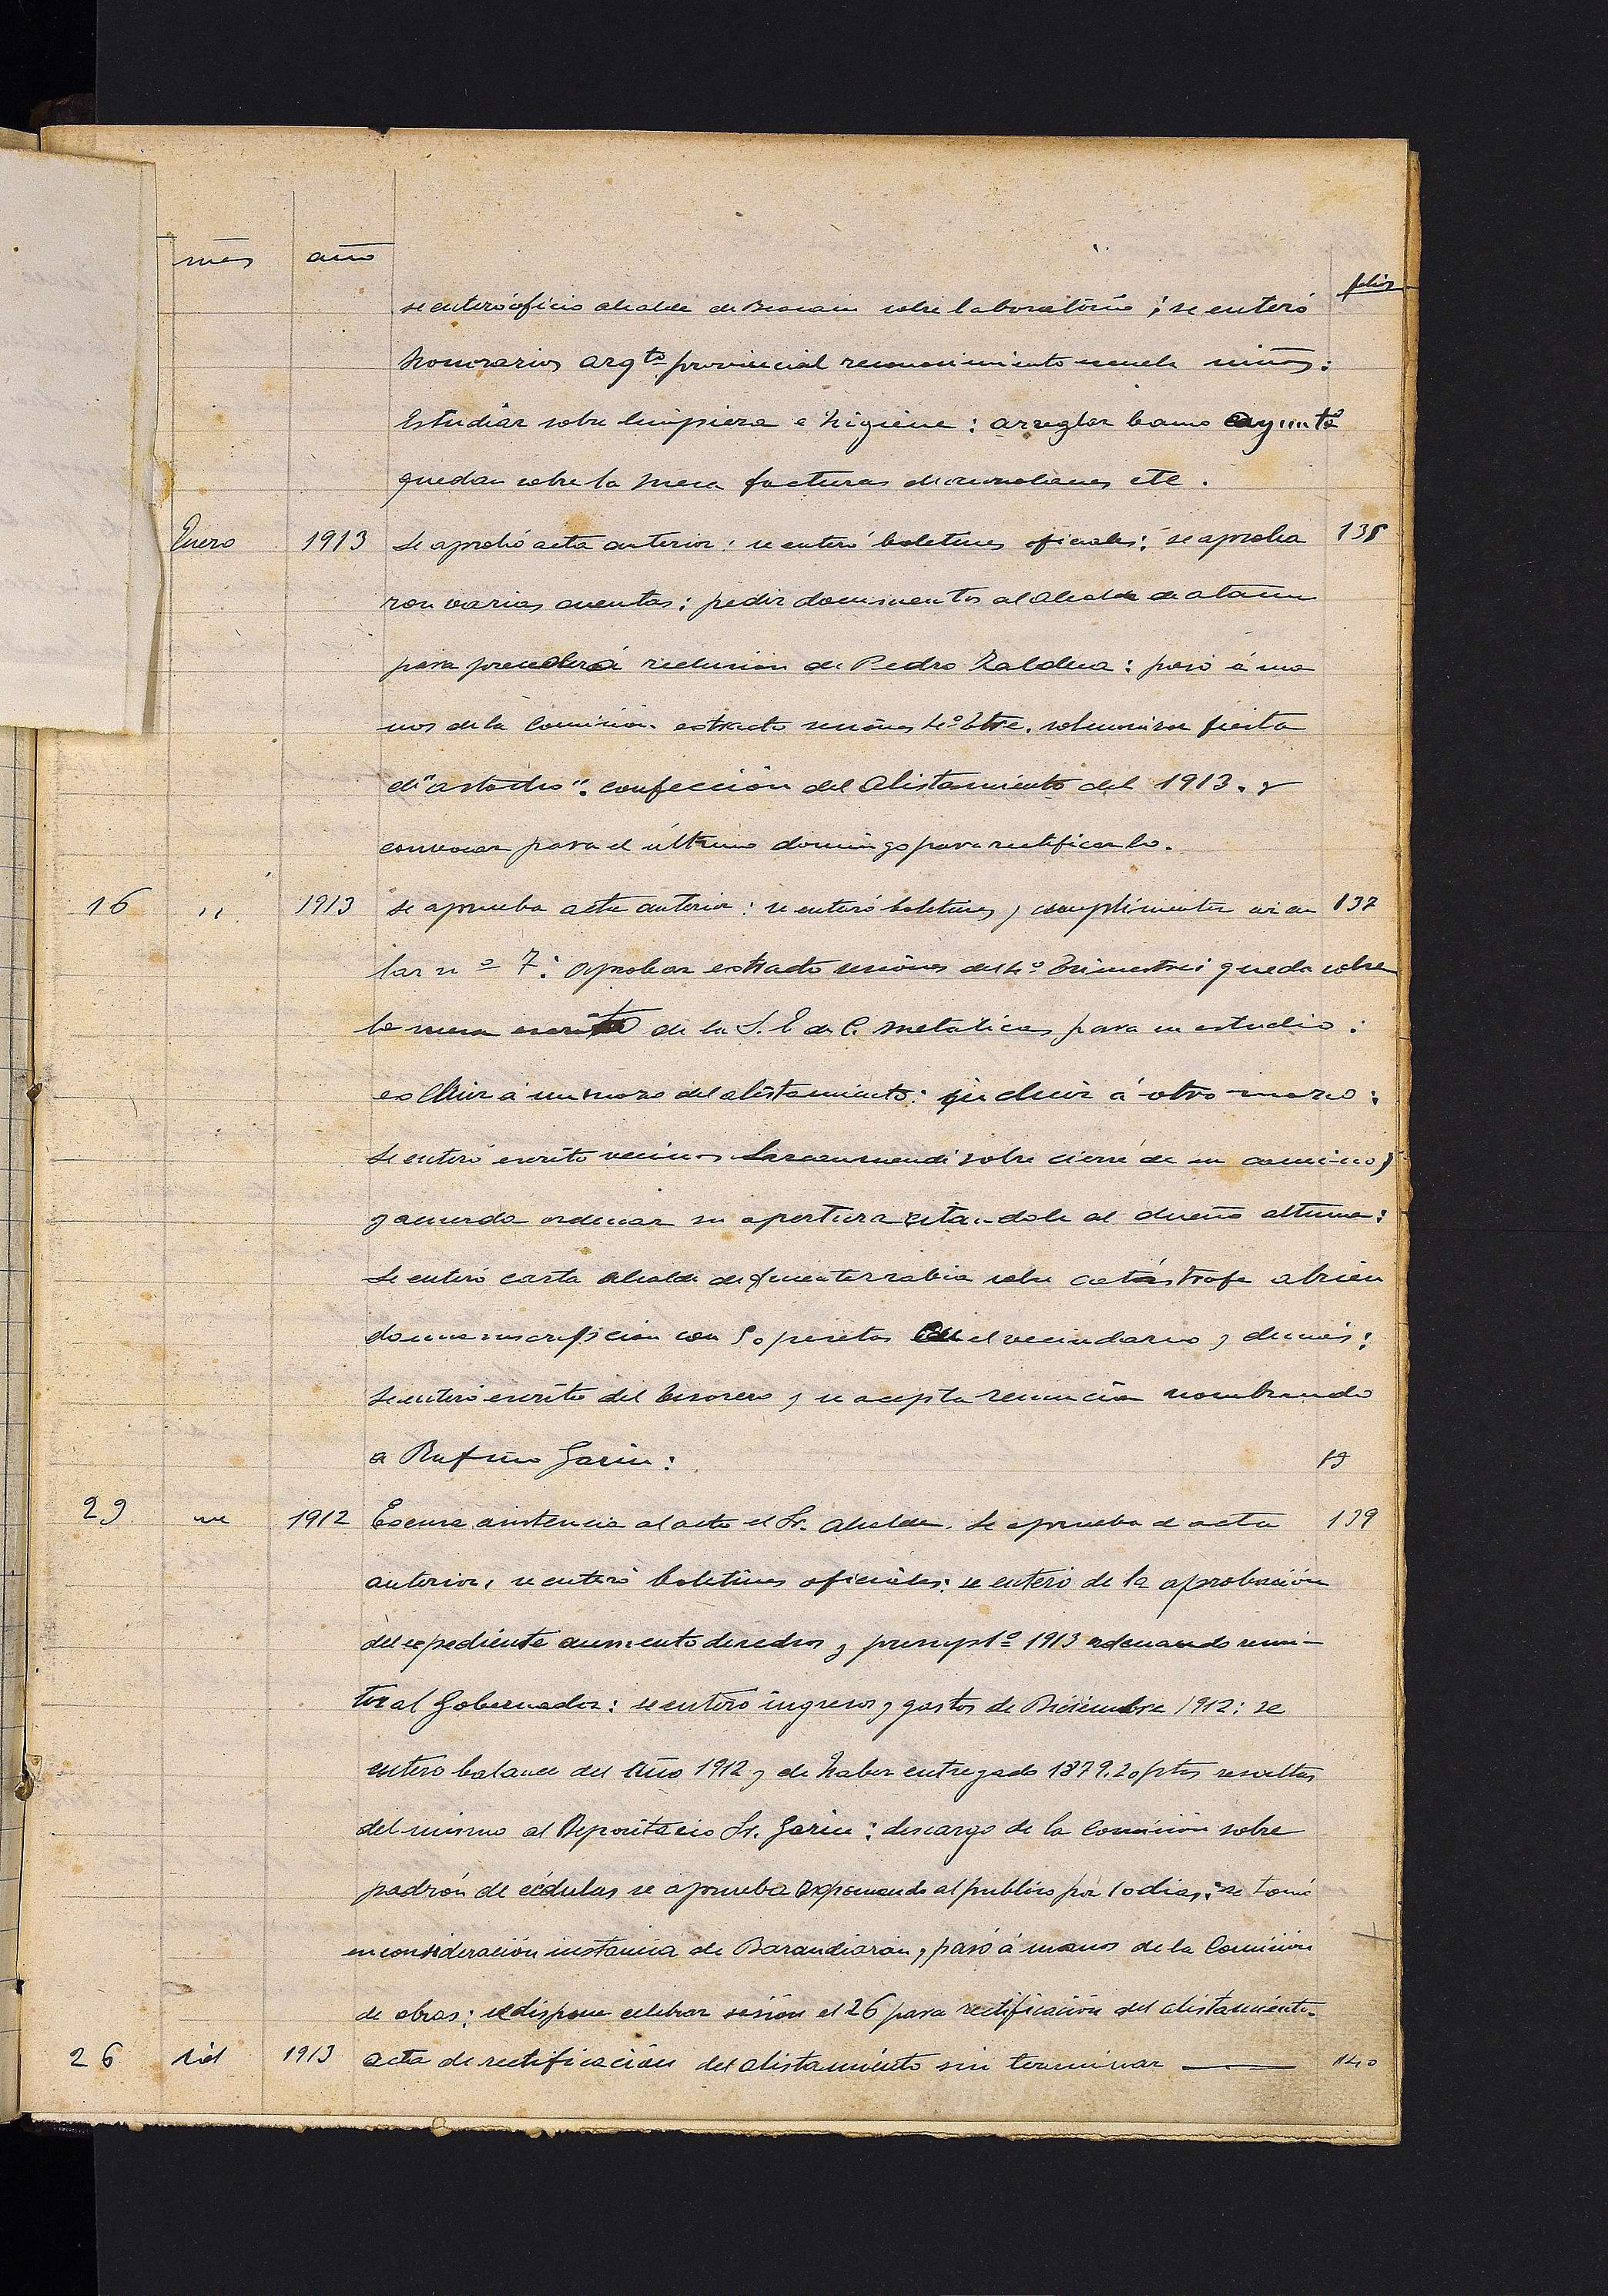 mes año
folios
se enteró oficio alcalde de Beasain sobre laboratorio; se enteró
honorarios arqto provincial reconocimiento escuela niños:
Estudiar sobre limpieza e higiene: arreglar banco Ayuntº
quedan sobre la mesa facturas etc.
Enero 1913 Se aprobó acta anterior: se enteró boletines oficiales: se aproba 135
ron varias cuentas: pedir documentos al Alcalde de Ataun
para proceder á reclusion de Pedro Zaldua: pasó á ma
nos de la Comision. estracto sesiones 4º btre. solemnizar fiesta
confección del Alistamiento del 1913. y
convocar para el último domingo para rectificarlo.
16 " 1913 Se aprueba acta anterior: se enteró boletines y cumplimentar circu 137
lar nº 7: Aprobar estracto sesiones del 4º trimestre: queda sobre
la mesa escrito de la S. E. de C. Metalicas para su estudio:
escluir á un mozo del alistamiento: incluir á otro mozo:
Se enteró escrito vecinos sobre cierre de un camino y
y acuerda ordenar su apertura citandole al dueño
Se enteró carta Alcalde de Fuenterrabia sobre catástrofe abrien
do una suscripcion con 50 pesetas en el vecindario y demás:
Se enteró escrito del tesorero y se acepta renuncia nombrando
a Rufino Garin:
29 1912 Escusa asistencia al acto el Sr. Alcalde. Se aprueba el acta 139
anterior, se enteró boletines oficiales: se enteró de la aprobación
del expediente aumento derechos y presuptº 1913 ordenando remi-
tir al Gobernador: se enteró ingresos y gastos de Diciembre 1912: se
enteró balance del año 1912 y de haber entregado 1879.20 ptas resultas
del mismo al Depositario Sr. Garin: descargo de la Comision sobre
padrón de cédulas se aprueba exponiendo al publico por 10 dias: se tomó
en consideración instancia de Barandiaran y pasó á manos de la Comision
de obras: se dispone celebrar sesión el 26 para rectificación del alistamiento.
26 id 1913 Acta de rectificacion del alistamiento sin terminar 140